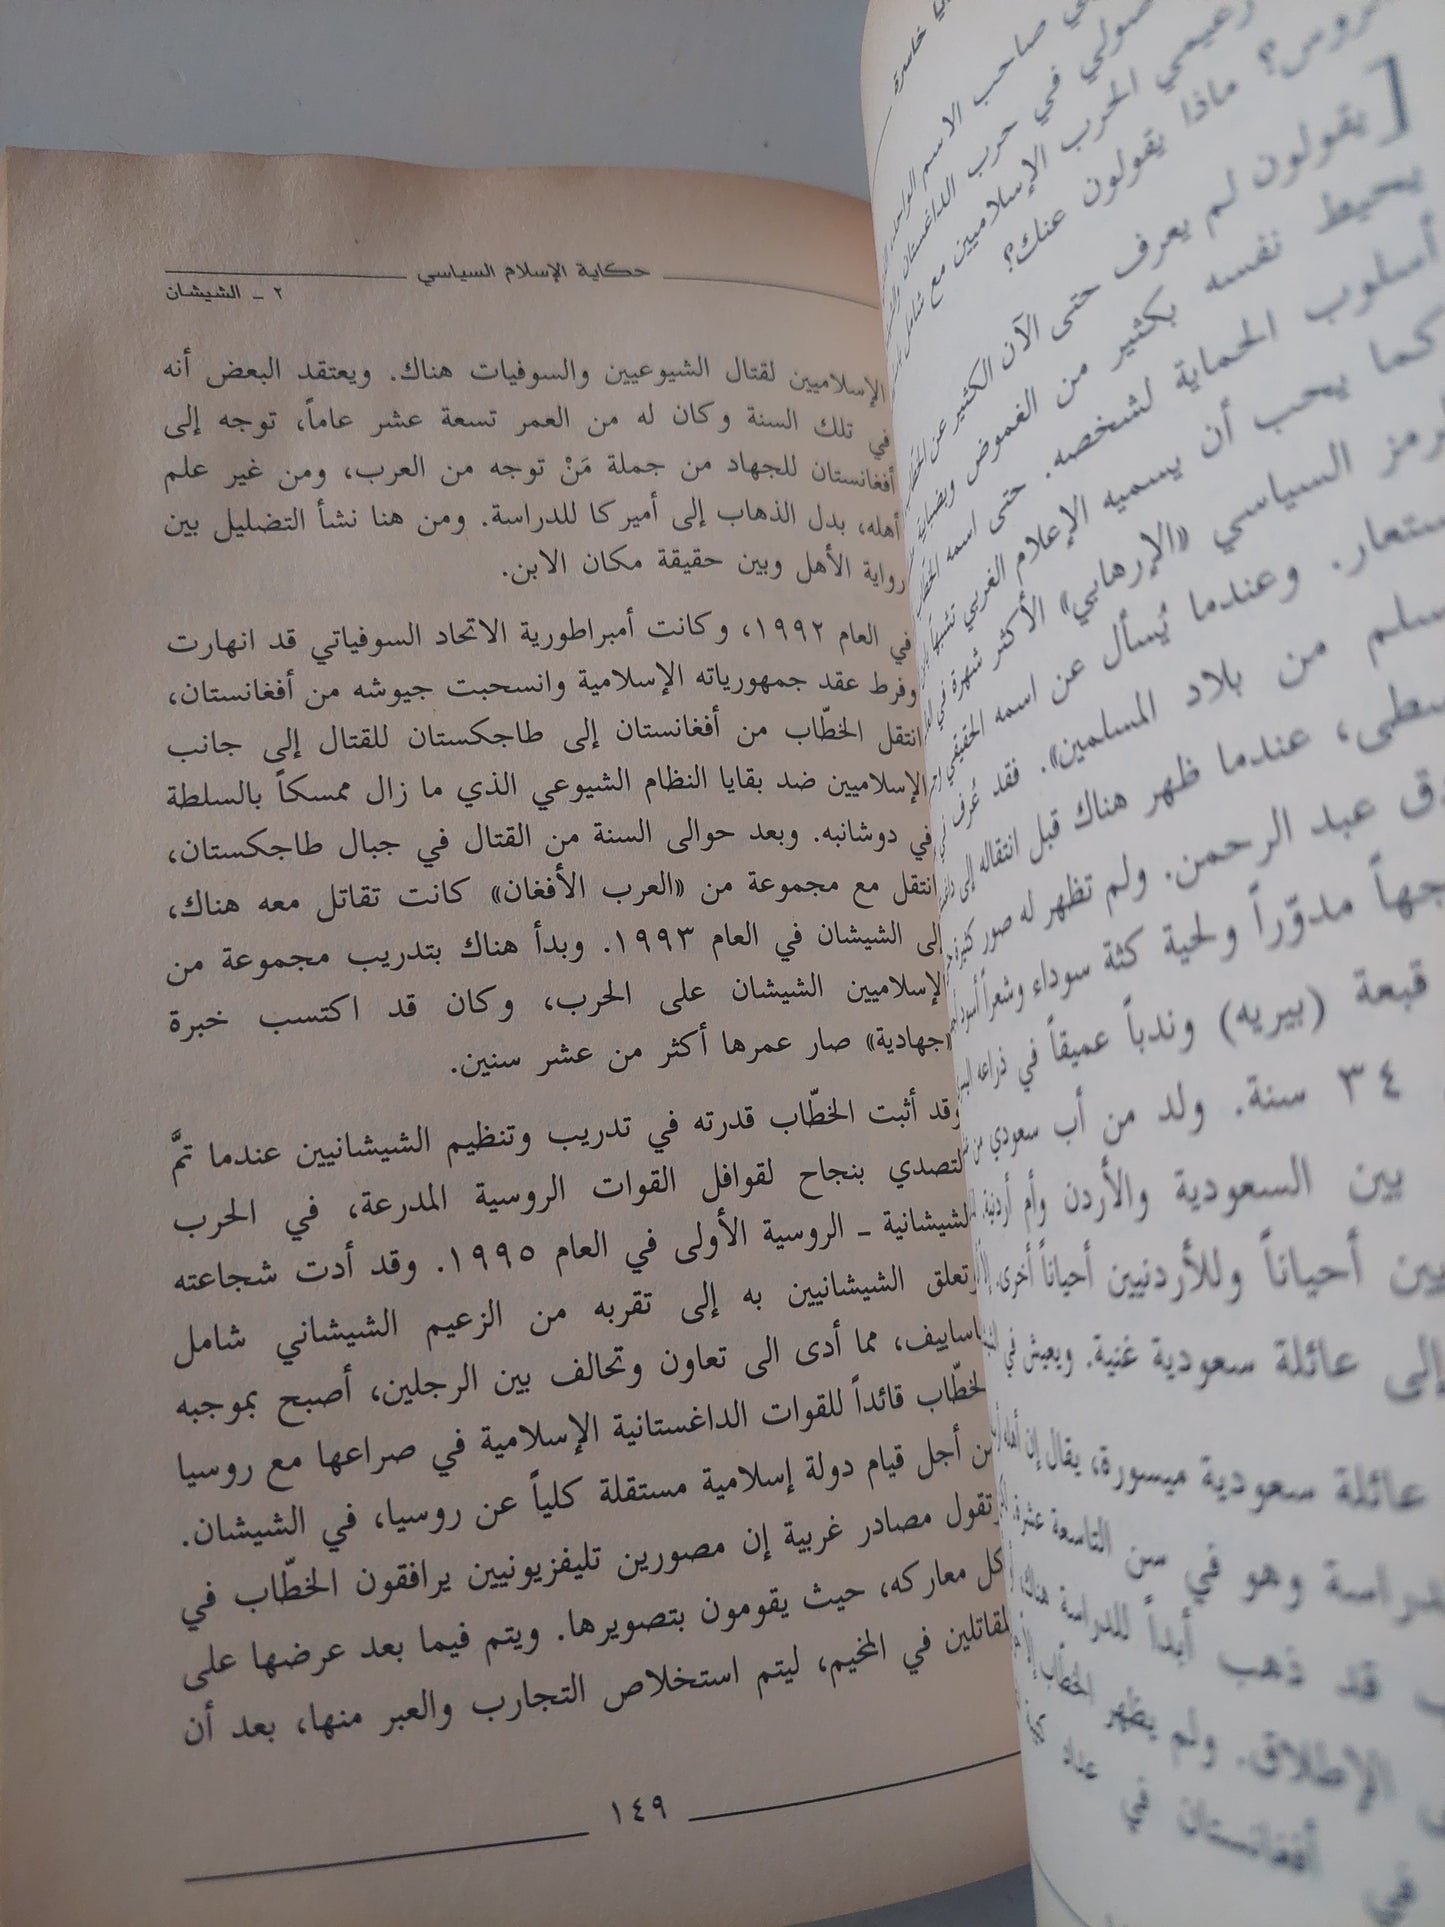 حكاية الإسلام السياسي
٢ ـ الشيشان
الإسلاميين لقتال الشيوعيين والسوفيات هناك. ويعتقد البعض أنه
في تلك السنة وكان له من العمر تسعة عشر عاماً، توجه إلى
أفغانستان للجهاد من جملة مَنْ توجه من العرب، ومن غير علم
أهله، بدل الذهاب إلى أميركا للدراسة. ومن هنا نشأ التضليل بين
رواية الأهل وبين حقيقة مكان الابن.
في العام ١٩٩٢، وكانت أمبراطورية الاتحاد السوفياتي قد انهارت
وفرط عقد جمهورياته الإسلامية وانسحبت جيوشه من أفغانستان،
انتقل الخطّاب من أفغانستان إلى طاجكستان للقتال إلى جانب
الإسلاميين ضد بقايا النظام الشيوعي الذي ما زال ممسكاً بالسلطة
في دوشانبه. وبعد حوالى السنة من القتال في جبال طاجكستان،
انتقل مع مجموعة من «العرب الأفغان» كانت تقاتل معه هناك،
إلى الشيشان في العام ١٩٩٣. وبدأ هناك بتدريب مجموعة من
الإسلاميين الشيشان على الحرب، وكان قد اكتسب خبرة
«جهادية» صار عمرها أكثر من عشر سنين.
وقد أثبت الخطّاب قدرته في تدريب وتنظيم الشيشانيين عندما تمَّ
لتصدي بنجاح لقوافل القوات الروسية المدرعة، في الحرب
لشيشانية ـ الروسية الأولى في العام ١٩٩٥. وقد أدت شجاعته
وتعلق الشيشانيين به إلى تقربه من الزعيم الشيشاني شامل
اساييف، مما أدى الى تعاون وتحالف بين الرجلين، أصبح بموجبه
لخطّاب قائداً للقوات الداغستانية الإسلامية في صراعها مع روسيا
من أجل قيام دولة إسلامية مستقلة كلياً عن روسيا، في الشيشان.
وتقول مصادر غربية إن مصورين تليفزيونيين يرافقون الخطّاب في
كل معاركه، حيث يقومون بتصويرها. ويتم فيما بعد عرضها على
لمقاتلين في المخيم، ليتم استخلاص التجارب والعبر منها، بعد أن
١٤٩
خاسرة
صاحب الاسم
صولي في حرب الداغستان
زعيمي الحرب الإسلاميين مع شامل
روس؟ ماذا يقولون عنك؟
[يقولون لم يعرف حتى الآن الكثير عن
يحيط نفسه بكثير من الغموض
أسلوب الحماية لشخصه. حتى اسمه
كما يحب أن يسميه الإعلام الغربي
رمز السياسي «الإرهابي» الأكثر شهرة في
ستعار. وعندما يُسأل عن اسمه الحقيقي
سلم من بلاد المسلمين». فقد عُرف
سطى، عندما ظهر هناك قبل انتقاله إلى
عبد الرحمن. ولم تظهر له صور كثيرة
جهاً مدوّراً ولحية كثة سوداء وشعراً أسود
قبعة (بيريه) وندباً عميقاً في ذراعه
٣٤ سنة. ولد من أب سعودي
بين السعودية والأردن وأم أردنية
ين أحياناً وللأردنيين أحياناً أخرى.
إلى عائلة سعودية غنية. ويعيش في
عائلة سعودية ميسورة، يقال إن
دراسة وهو في سن التاسعة عشرة.
قد ذهب أبداً للدراسة هناك،
الإطلاق. ولم يظهر الخطّاب
في أفغانستان في عداد